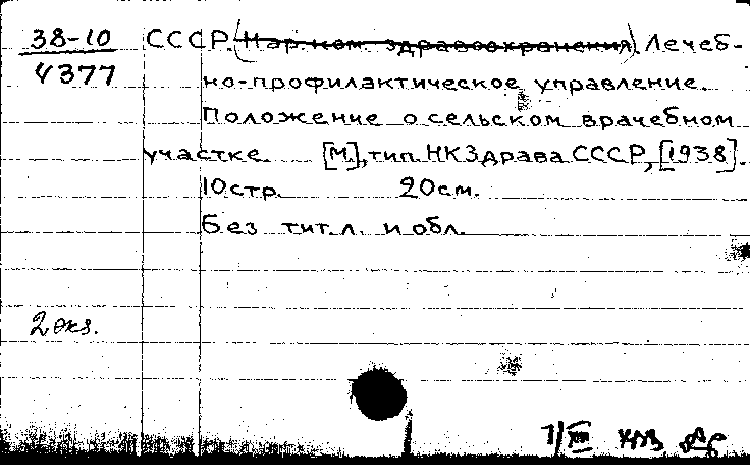 38-10 СССР. (Нар. ком. здравоохранения). Лечеб-
4377 но-профилактическое управление.
Положение о сельском врачебном
участке. [М.], тип. НКЗдрава СССР, [1938].
10 стр. 20 см.
Без тит. л. и обл.
2 экз.